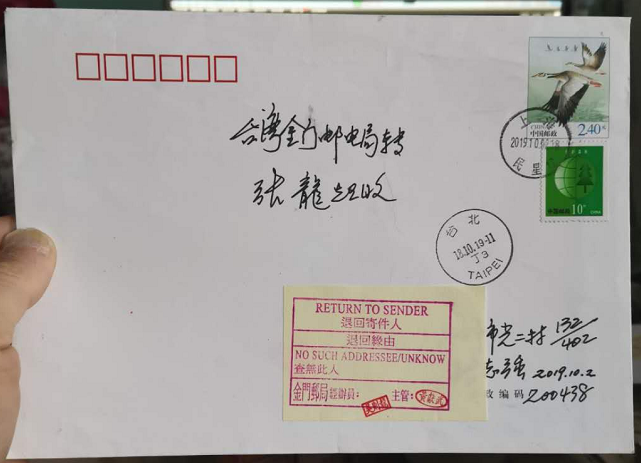 中国邮政
2.40元
上海
2019.10.
民星
中国邮政
10元
台湾金门邮电局转
张龙
收
台北
18.10.19-11
J3
TAIPEI
RETURN TO SENDER
退回寄件人
退回緣由
NO SUCH ADDRESSEE/UNKNOW
查無此人
金門郵局經辦員: 主管:
市光二村 132/402
2019.10.2
政编码 200438